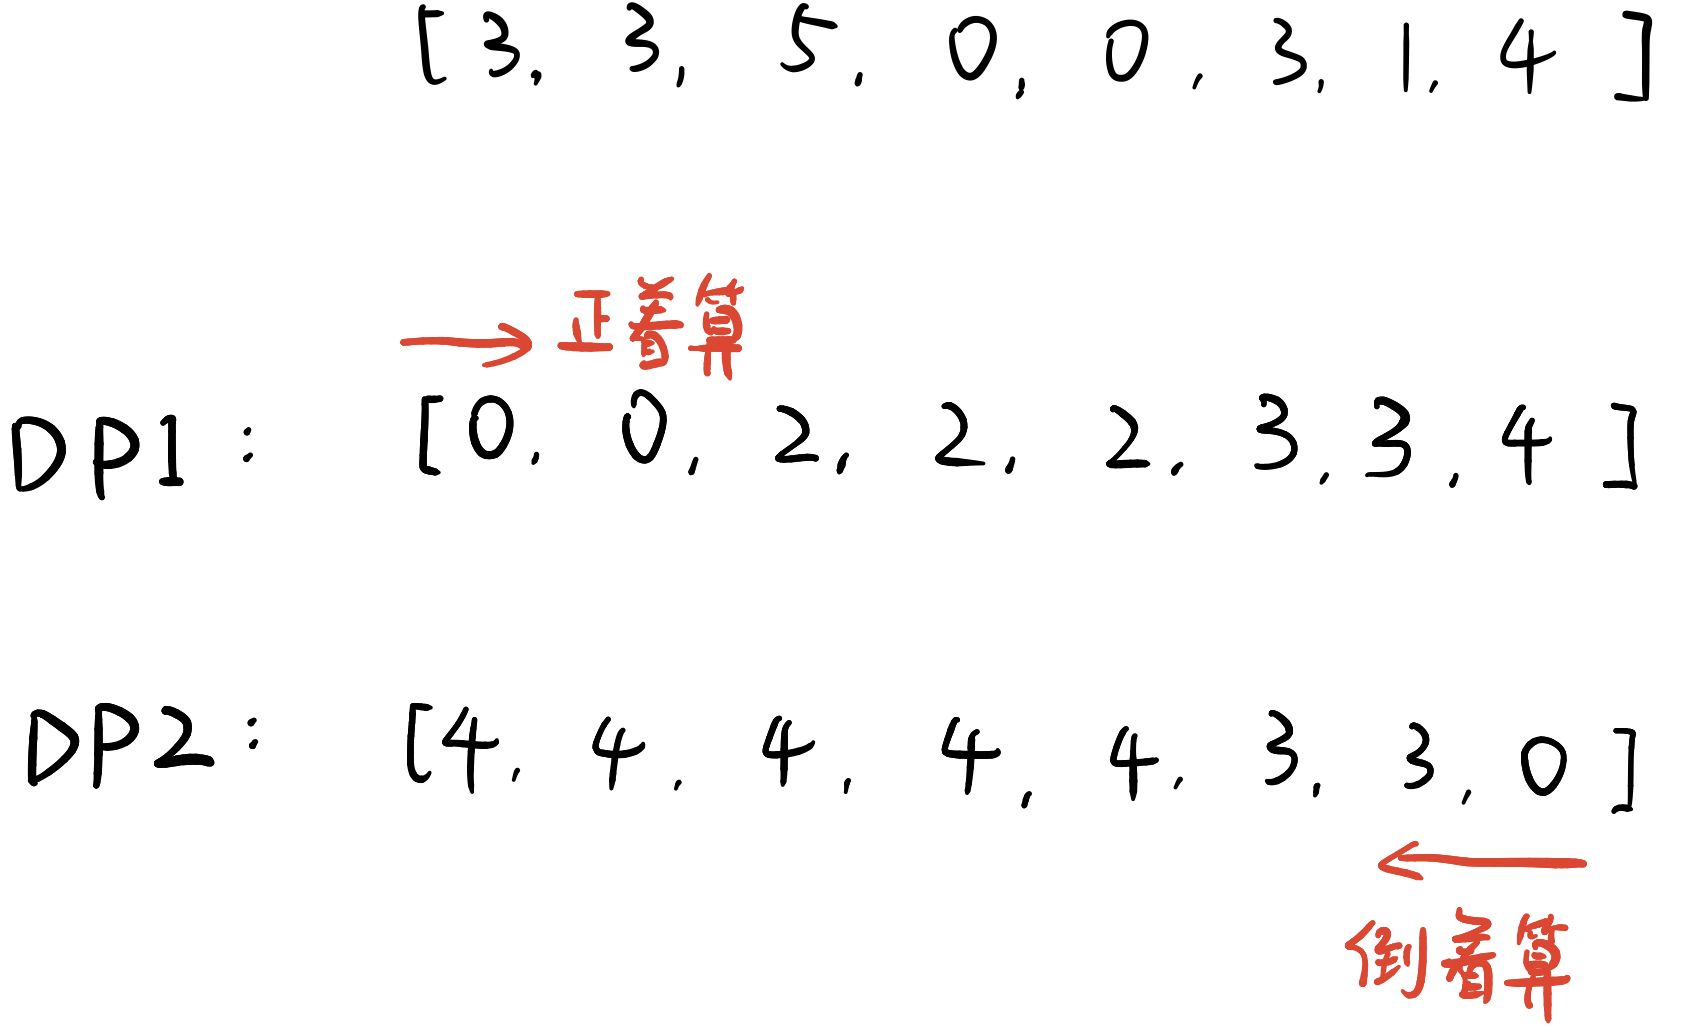 [3, 3, 5, 0, 0, 3, 1, 4]
正着算
DP1: [0, 0, 2, 2, 2, 3, 3, 4]
DP2: [4, 4, 4, 4, 4, 3, 3, 0]
倒着算